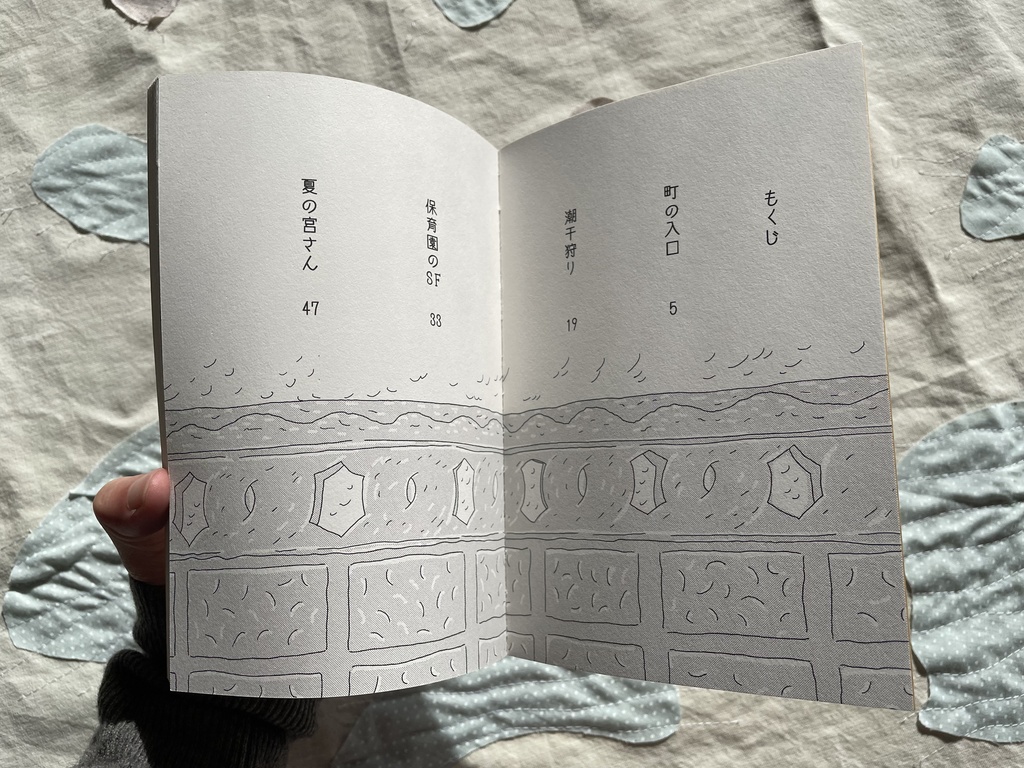 もくじ
町の入口 5
潮干狩り 19
保育園のSF 33
夏の宮さん 47